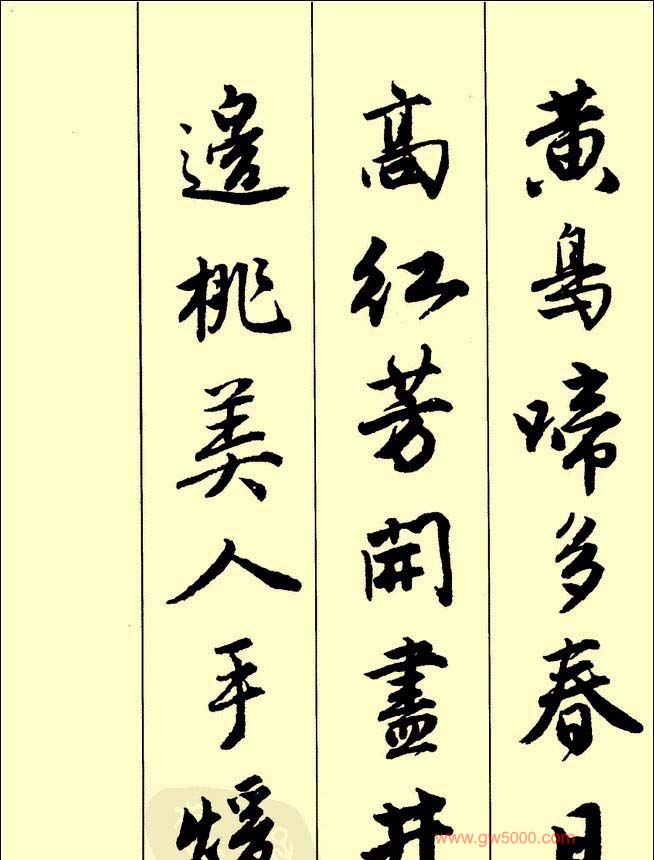 黄鳥啼多春日
高紅芳開盡井
邊桃美人手煖
www.gw5000.com